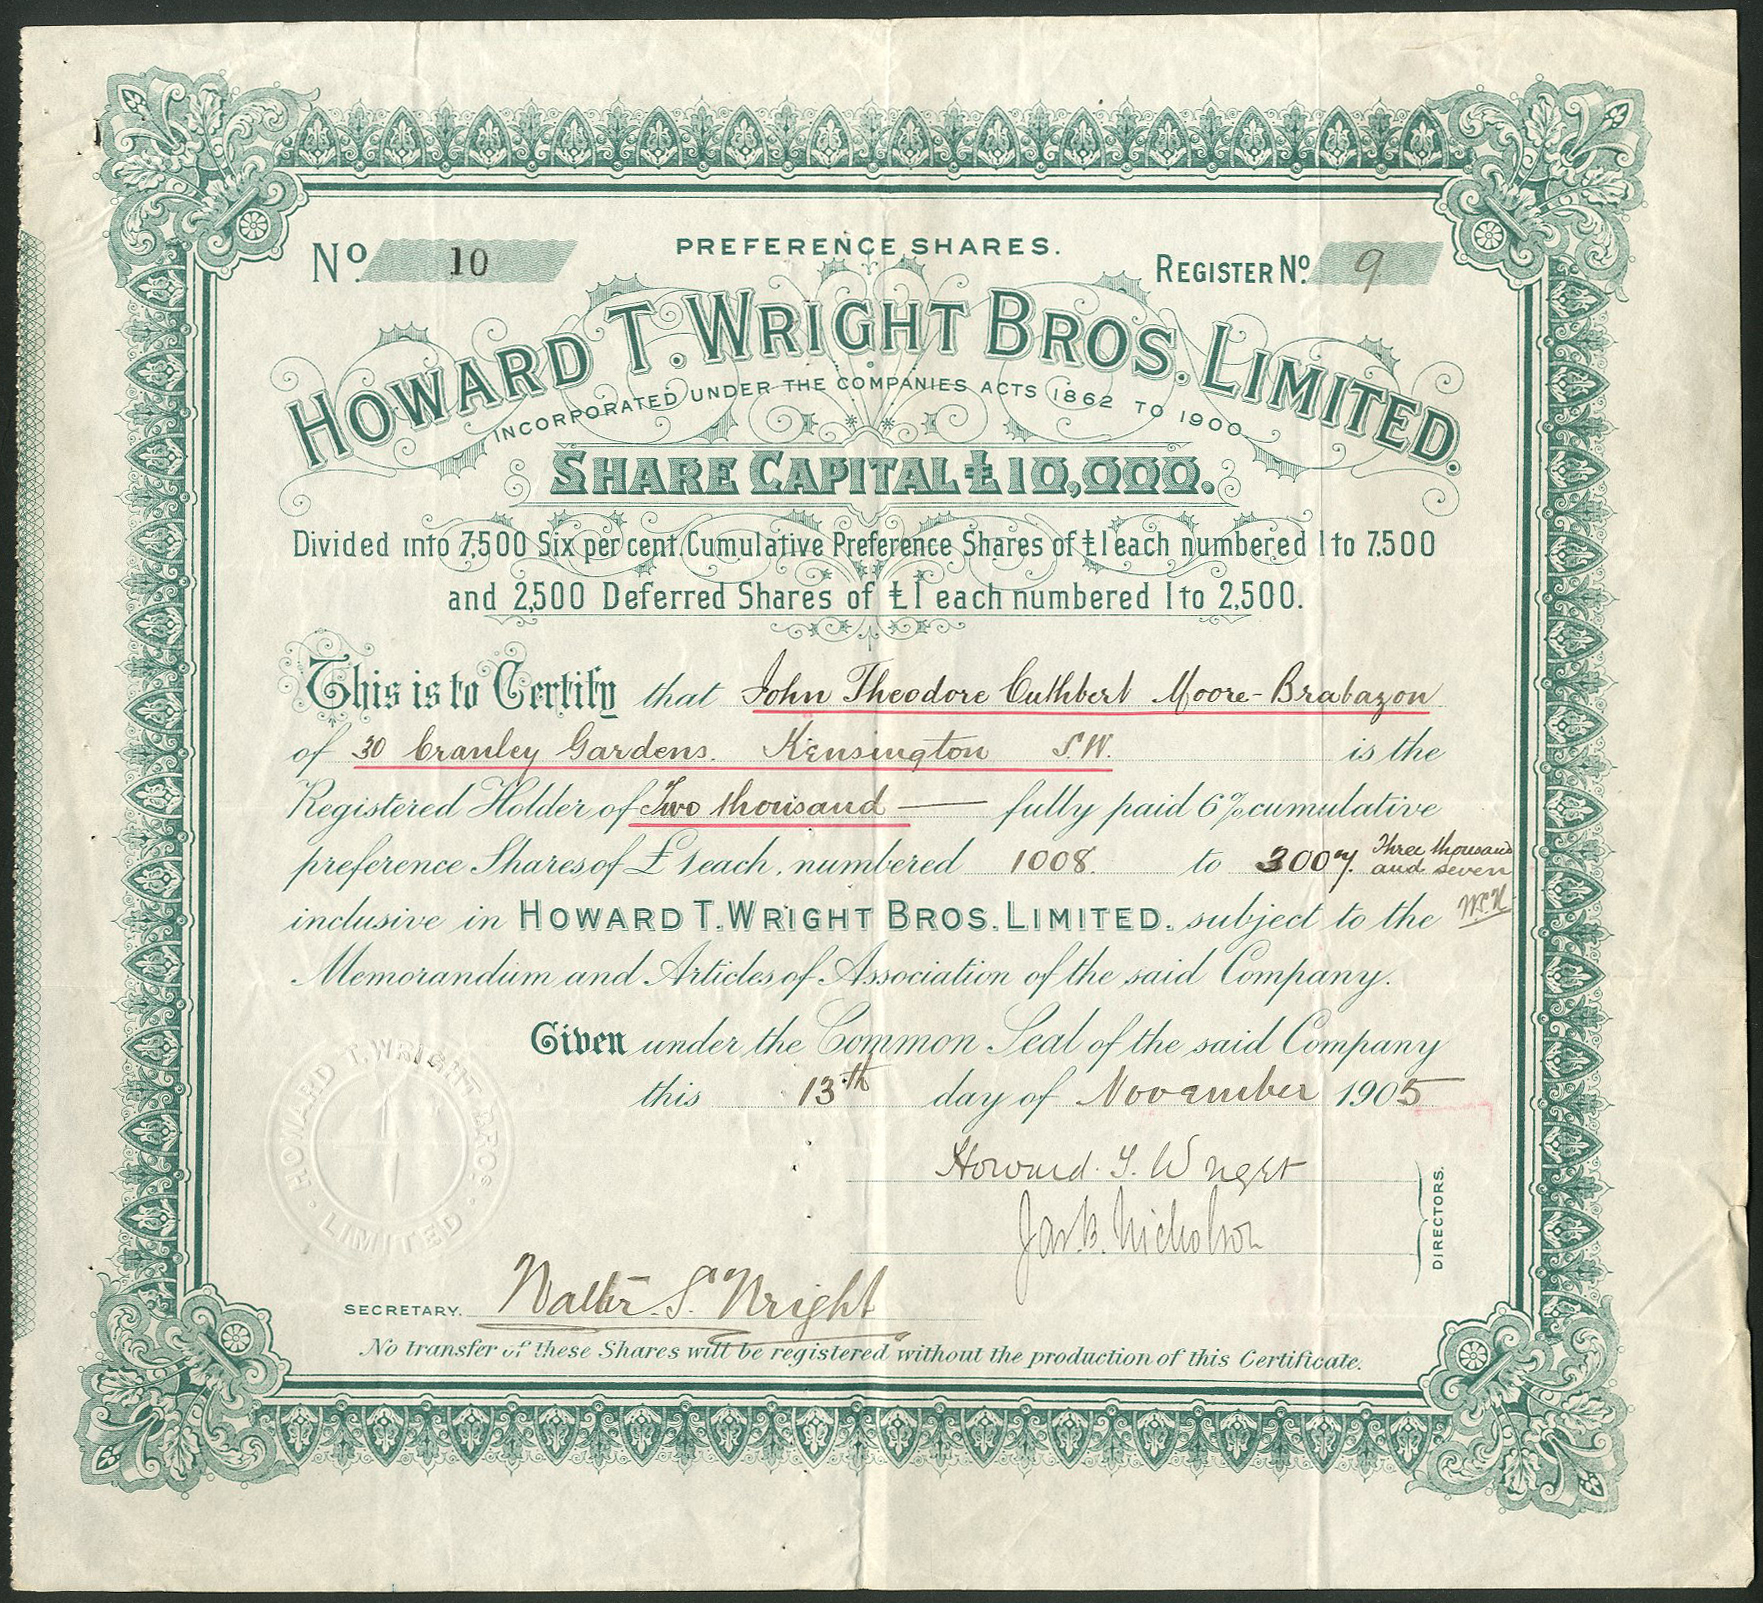 PREFERENCE SHARES.
No. 10
REGISTER No. 9
HOWARD T. WRIGHT BROS. LIMITED.
INCORPORATED UNDER THE COMPANIES ACTS 1862 TO 1900
SHARE CAPITAL £10,000.
Divided into 7,500 Six per cent. Cumulative Preference Shares of £1 each numbered 1 to 7,500
and 2,500 Deferred Shares of £1 each numbered 1 to 2,500.
This is to Certify that John Theodore Cuthbert Moore-Brabazon
of 30 Cranley Gardens. Kensington S.W. is the
Registered Holder of Two thousand — fully paid 6% cumulative
preference Shares of £1 each, numbered 1008. to 3007. Three thousand and seven
inclusive in HOWARD T. WRIGHT BROS. LIMITED. subject to the
Memorandum and Articles of Association of the said Company.
Given under the Common Seal of the said Company
this 13th day of November 1905
HOWARD T. WRIGHT BROS. LIMITED
Howard. T. Wright
Jas. B. Nicholson
DIRECTORS.
SECRETARY. Walter. S. Wright
No transfer of these Shares will be registered without the production of this Certificate.